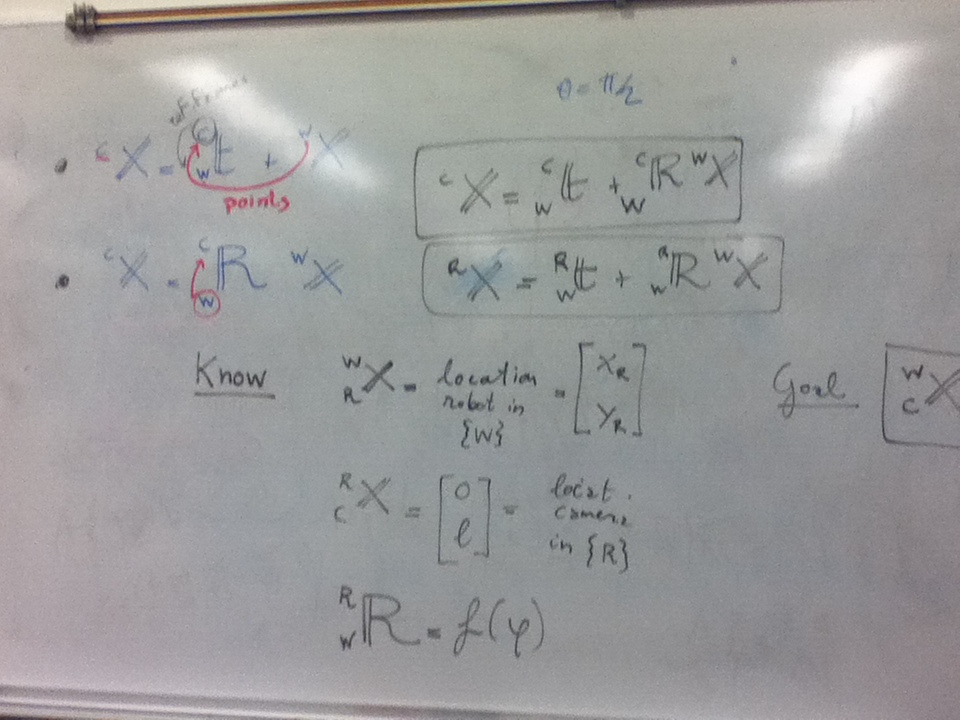 ref. frames
θ = π/2
• ᶜX = ᶜ_W t + ᵂX
points
ᶜX = ᶜ_W t + ᶜ_W R ᵂX
• ᶜX = ᶜ_W R ᵂX
ᴿX = ᴿ_W t + ᴿ_W R ᵂX
Know
ᵂ_R X = location robot in {W} = [X_R Y_R]
Goal ᵂ_C X
ᴿ_C X = [0 ℓ] = locat. camera in {R}
ᴿ_W R = f(φ)